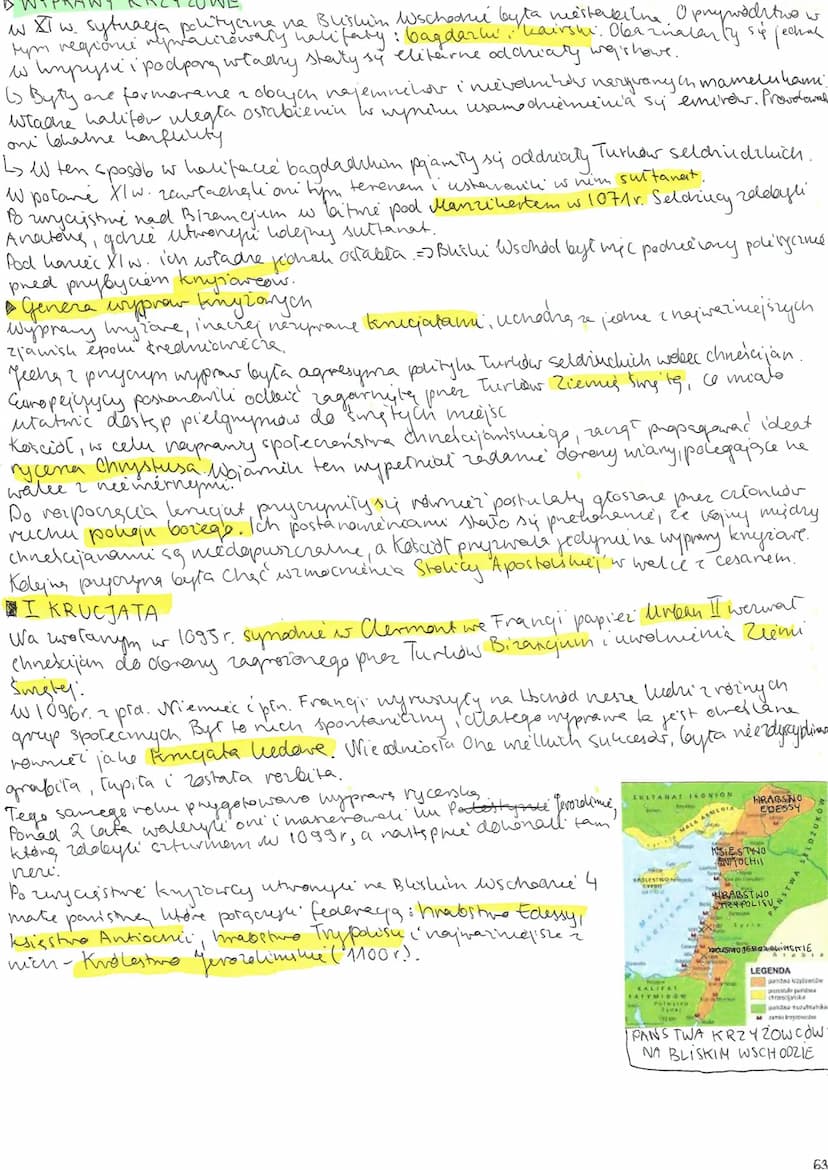 WYPRAWY KRZYŻOWE
W XI w. sytuacja polityczna na Bliskim Wschodzie była niestabilna. O przywództwo w
tym regionie rywalizowały kalifaty: bagdadzki i kairski. Oba znalazły się jednak
w kryzysie i podporą władzy stały się elitarne oddziały wojskowe.
↳ Były one formowane z obcych najemników i niewolników nazywanych mamelukami.
Władza kalifów uległa osłabieniu w wyniku usamodzielnienia się emirów. Prowadzili
oni lokalne konflikty
↳ W ten sposób w kalifacie bagdadzkim pojawiły się oddziały Turków seldżudzkich.
W połowie XI w. zawładnęli oni tym terenem i ustanowili w nim sułtanat.
Po zwycięstwie nad Bizancjum w bitwie pod Manzikertem w 1071r. Seldżucy zdobyli
Anatolię, gdzie utworzyli kolejny sułtanat.
Pod koniec XI w. ich władza jednak osłabła. ⇒ Bliski Wschód był więc podzielony politycznie
przed przybyciem krzyżowców.
Geneza wypraw krzyżowych
Wyprawy krzyżowe, inaczej nazywane krucjatami, uchodzą za jedne z najważniejszych
zjawisk epoki średniowiecza.
Jedną z przyczyn wypraw była agresywna polityka Turków seldżuckich wobec chrześcijan.
Europejczycy postanowili odbić zagarniętą przez Turków Ziemię Świętą, co miało
ułatwić dostęp pielgrzymów do świętych miejsc
Kościół, w celu naprawy społeczeństwa chrześcijańskiego, zaczął propagować ideał
rycerza Chrystusa. Wojownik ten wypełniał zadanie obrony wiary, polegające na
walce z niewiernymi.
Do rozpoczęcia krucjat przyczyniły się również postulaty głoszone przez członków
ruchu pokoju bożego. Ich postanowieniami stało się przekonanie, że wojny między
chrześcijanami są niedopuszczalne, a Kościół przyzwala jedynie na wyprawy krzyżowe.
Kolejną przyczyną była chęć wzmocnienia Stolicy Apostolskiej w walce z cesarzem.
I KRUCJATA
Na zwołanym w 1095r. synodzie w Clermont we Francji papież Urban II wezwał
chrześcijan do obrony zagrożonego przez Turków Bizancjum i uwolnienia Ziemi
Świętej.
W 1096r. z płd. Niemiec i płn. Francji wyruszyły na Wschód rzesze ludzi z różnych
grup społecznych. Był to ruch spontaniczny, dlatego wyprawa ta jest określana
również jako krucjata ludowa. Nie odniosła ona wielkich sukcesów, była niezdyscyplinowana
grabiła, łupiła i została rozbita.
Tego samego roku przygotowano wyprawę rycerską.
Ponad 2 lata walczyli oni i maszerowali ku Palestynie Jerozolimie,
którą zdobyli szturmem w 1099r, a następnie dokonali tam
rzezi.
Po zwycięstwie krzyżowcy utworzyli na Bliskim Wschodzie 4
małe państwa, które połączyli federacją: hrabstwo Edessy,
księstwo Antiochii, hrabstwo Trypolisu i najważniejsze z
nich - Królestwo Jerozolimskie (1100r.).
SUŁTANAT IKONION
MAŁA ARMENIA
HRABSTWO
EDESSY
KSIĘSTWO
ANTIOCHII
KRÓLESTWO
CYPRU
HRABSTWO
TRYPOLISU
PAŃSTWA SELDŻUKÓW
Syria
KRÓLESTWO JEROZOLIMSKIE
KALIFAT
FATYMIDÓW
Półwysep
Synaj
LEGENDA
państwa krzyżowców
pozostałe państwa
chrześcijańskie
państwa muzułmańskie
zamki krzyżowców
PAŃSTWA KRZYŻOWCÓW
NA BLISKIM WSCHODZIE
63